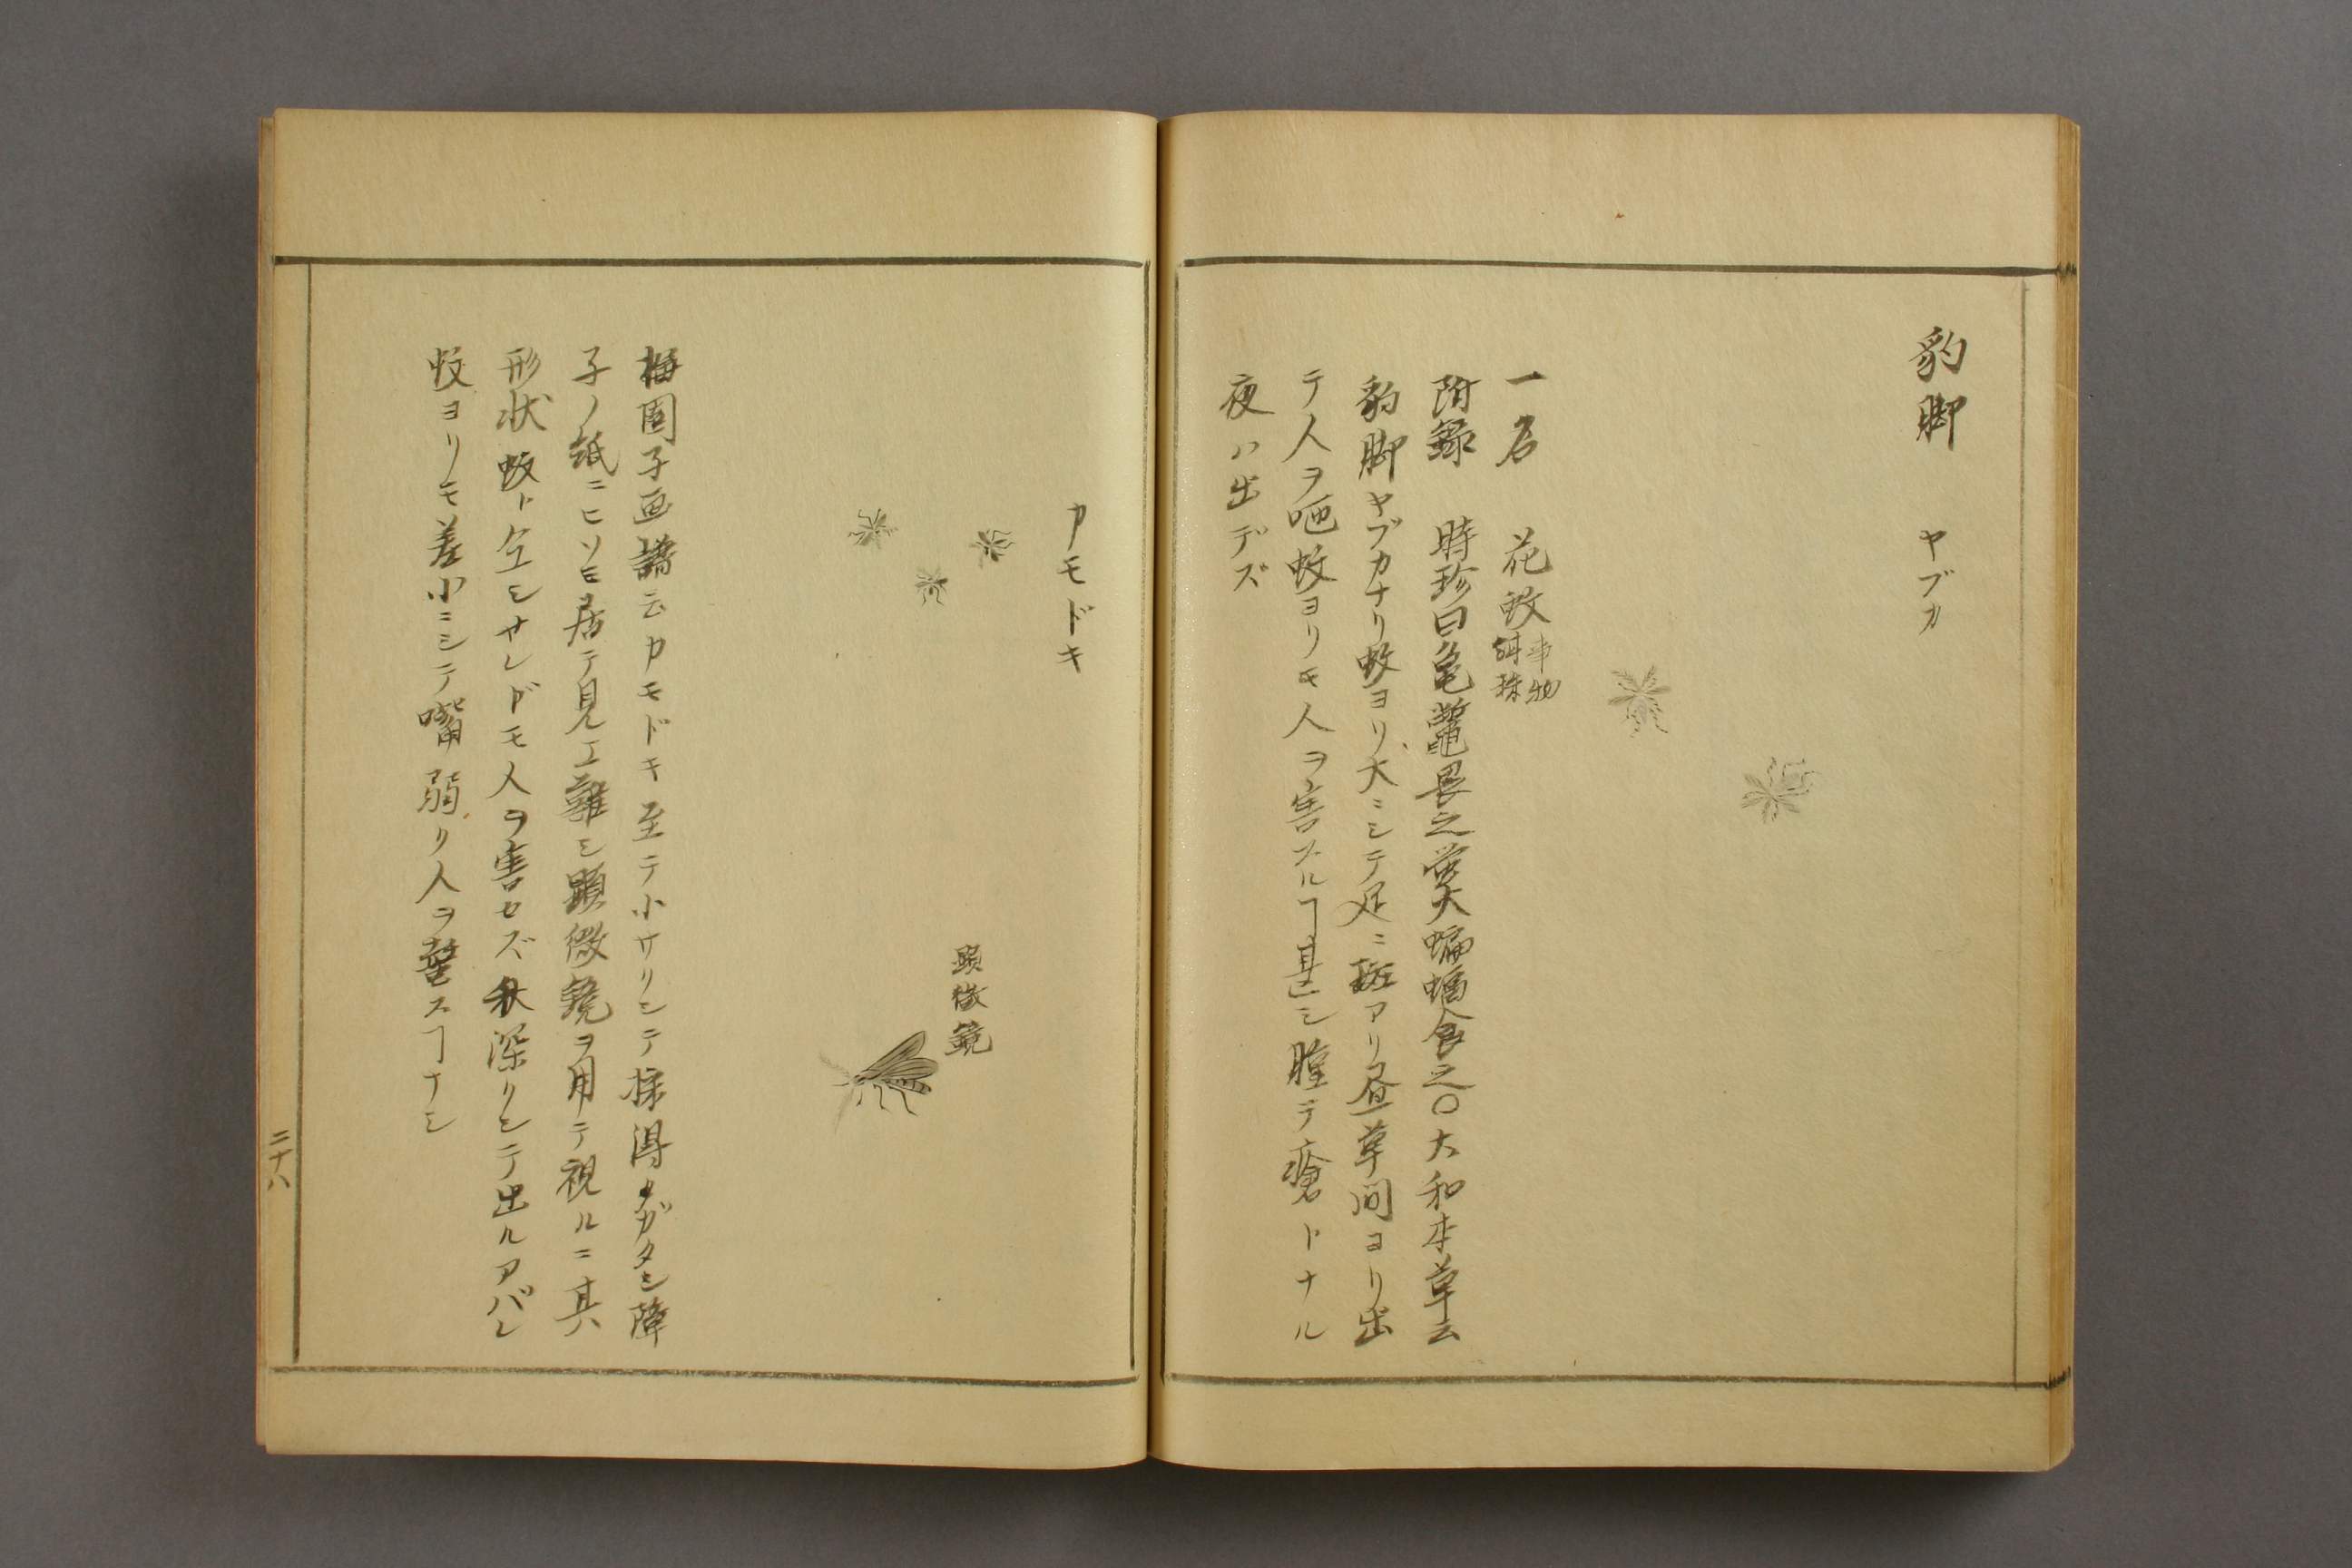 豹脚　ヤブカ
一名　花蚊 事物紺珠
附録　時珍曰亀鼈畏之螢火蝙蝠食之〇大和本草云
豹脚ヤブカナリ蚊ヨリ大ニシテ足ニ斑アリ昼草間ヨリ出
テ人ヲ咂蚊ヨリモ人ヲ害スルヿ甚シ腫テ瘡トナル
夜ハ出デズ
カモドキ
顕微鏡
梅園子画譜云カモドキ至テ小サリシテ採得ガタシ障
子ノ紙ニヒソヒ居テ見エ難シ顕微鏡ヲ用テ視ルニ其
形状蚊ト仝シサレドモ人ヲ害セズ秋深リシテ出ルアバレ
蚊ヨリモ差小ニシテ嘴弱リ人ヲ螫スヿナシ
二十八